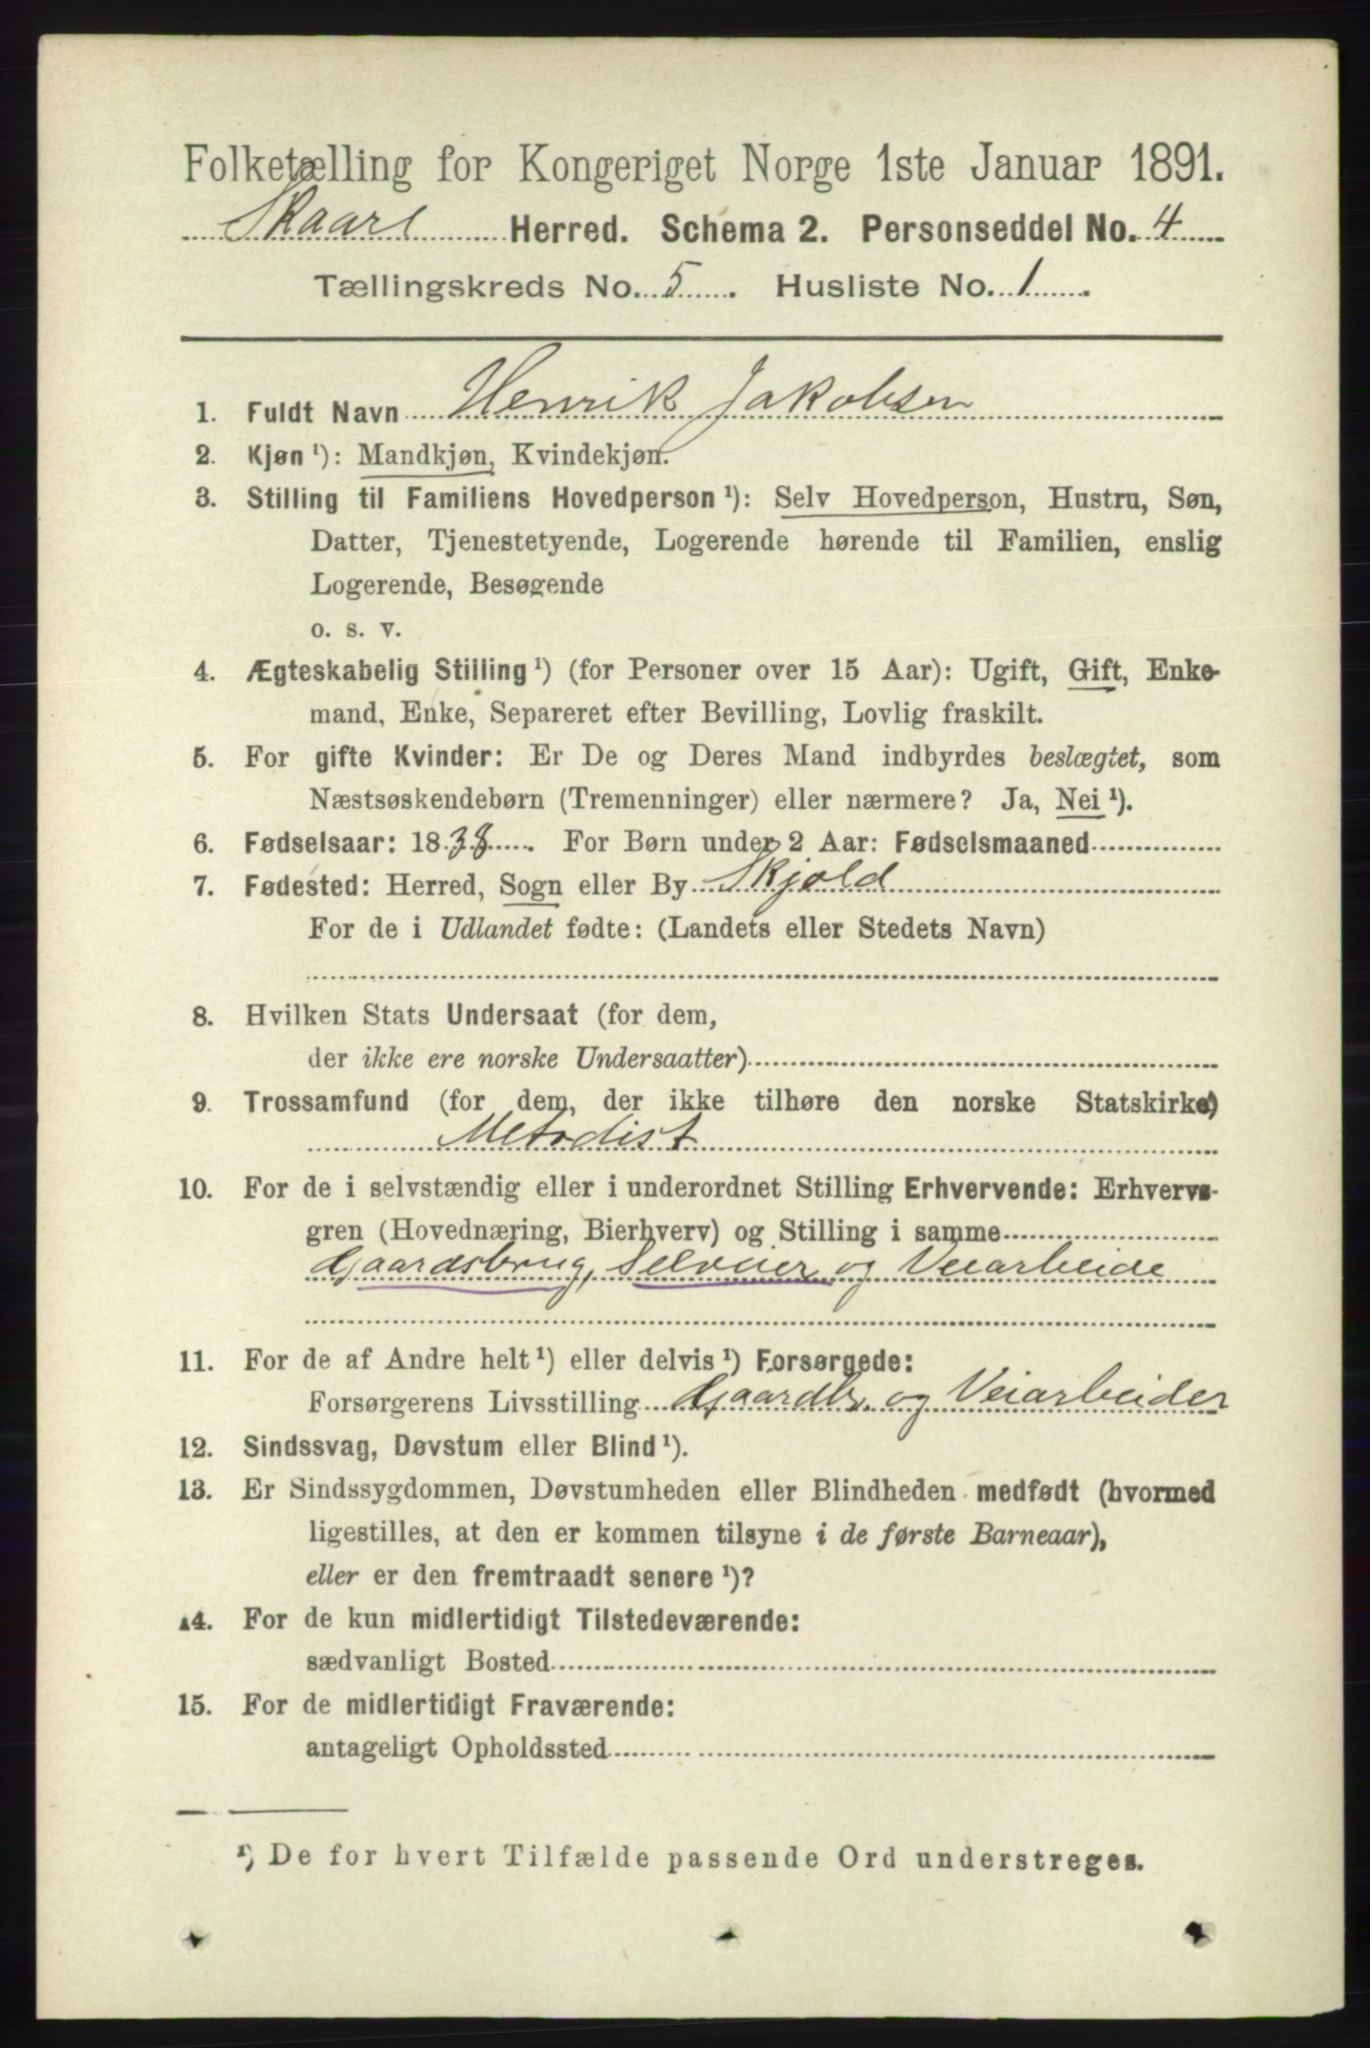 Folketælling for Kongeriget Norge 1ste Januar 1891.
Skaare Herred. Schema 2. Personseddel No. 4
Tællingskreds No. 5. Husliste No. 1.
1. Fuldt Navn Henrik Jakobsen
2. Kjøn ¹): Mandkjøn, Kvindekjøn.
3. Stilling til Familiens Hovedperson ¹): Selv Hovedperson, Hustru, Søn,
Datter, Tjenestetyende, Logerende hørende til Familien, enslig
Logerende, Besøgende
o. s. v.
4. Ægteskabelig Stilling ¹) (for Personer over 15 Aar): Ugift, Gift, Enke-
mand, Enke, Separeret efter Bevilling, Lovlig fraskilt.
5. For gifte Kvinder: Er De og Deres Mand indbyrdes beslægtet, som
Næstsøskendebørn (Tremenninger) eller nærmere? Ja, Nei ¹).
6. Fødselsaar: 1838. For Børn under 2 Aar: Fødselsmaaned
7. Fødested: Herred, Sogn eller By Skjold
For de i Udlandet fødte: (Landets eller Stedets Navn)
8. Hvilken Stats Undersaat (for dem,
der ikke ere norske Undersaatter)
9. Trossamfund (for dem, der ikke tilhøre den norske Statskirke)
Metodist
10. For de i selvstændig eller i underordnet Stilling Erhvervende: Erhvervs-
gren (Hovednæring, Bierhverv) og Stilling i samme
Gaardsbrug, Selveier og Veiarbeide
11. For de af Andre helt ¹) eller delvis ¹) Forsørgede:
Forsørgerens Livsstilling Gaardbr. og Veiarbeider
12. Sindssvag, Døvstum eller Blind ¹).
13. Er Sindssygdommen, Døvstumheden eller Blindheden medfødt (hvormed
ligestilles, at den er kommen tilsyne i de første Barneaar),
eller er den fremtraadt senere ¹)?
14. For de kun midlertidigt Tilstedeværende:
sædvanligt Bosted
15. For de midlertidigt Fraværende:
antageligt Opholdssted
¹) De for hvert Tilfælde passende Ord understreges.